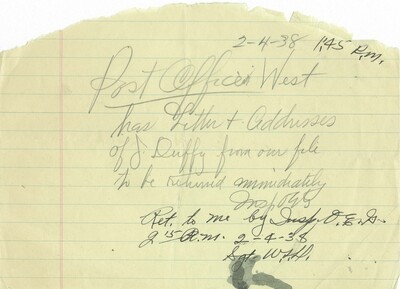 2-4-38 1:45 P.M.
Post Office West
has Letter + Addresses
of J Duffy from our file
to be returned immediately
Insp OEG
Ret. to me by Insp. O.E.G.
2 15 P.M. 2-4-38
Sgt. W.H.